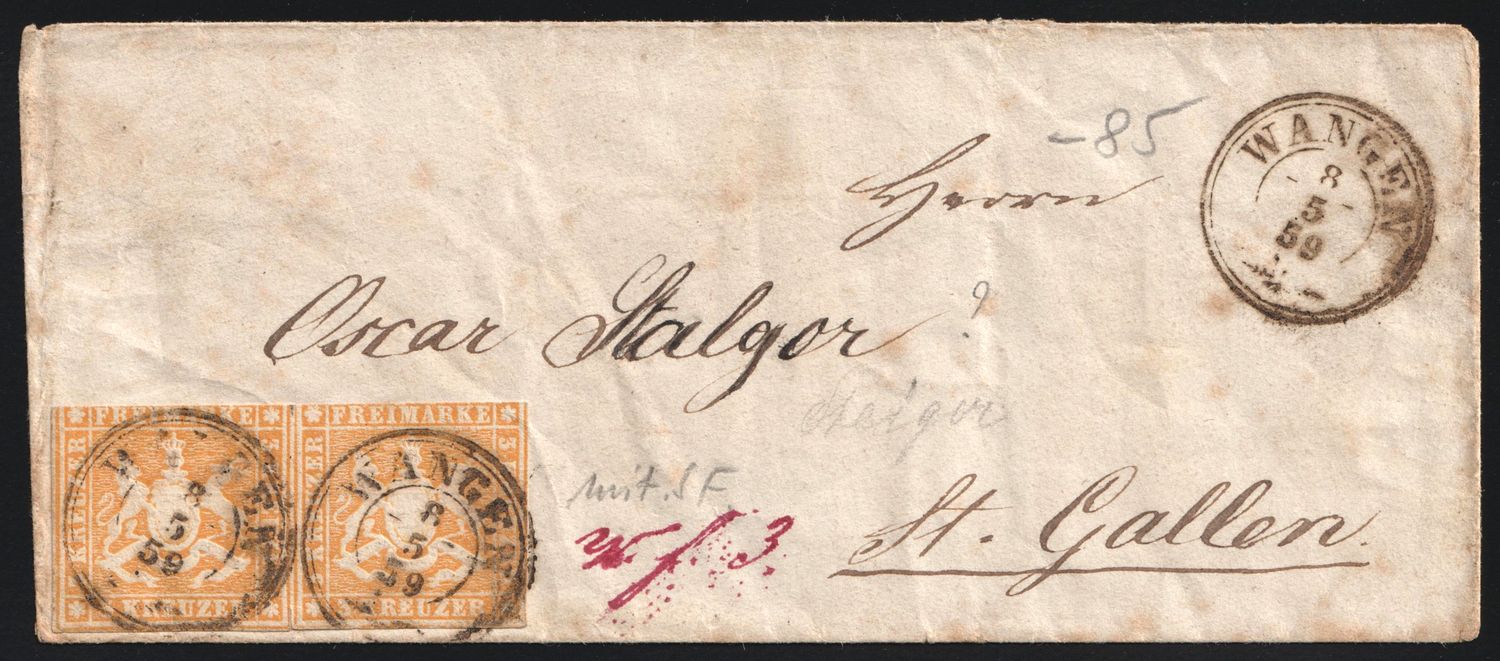 -85
WANGEN
8
5
59
Herrn
Oscar Stalgor ?
Steiger
FREIMARKE
3
KREUZER
KREUZER
8
5
59
FREIMARKE
3
KREUZER
3 KREUZER
WANGEN
8
5
59
mit. SF
w f. 3
St. Gallen.